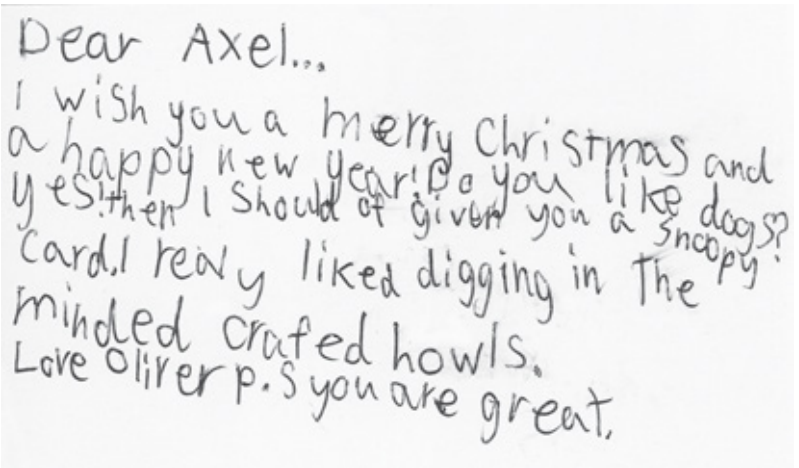 Dear Axel...
I wish you a merry Christmas and
a happy new year! Do you like dogs?
yes! then I should of given you a snoopy
card. I realy liked digging in the
minded crafed howls.
Love Oliver p.s you are great.